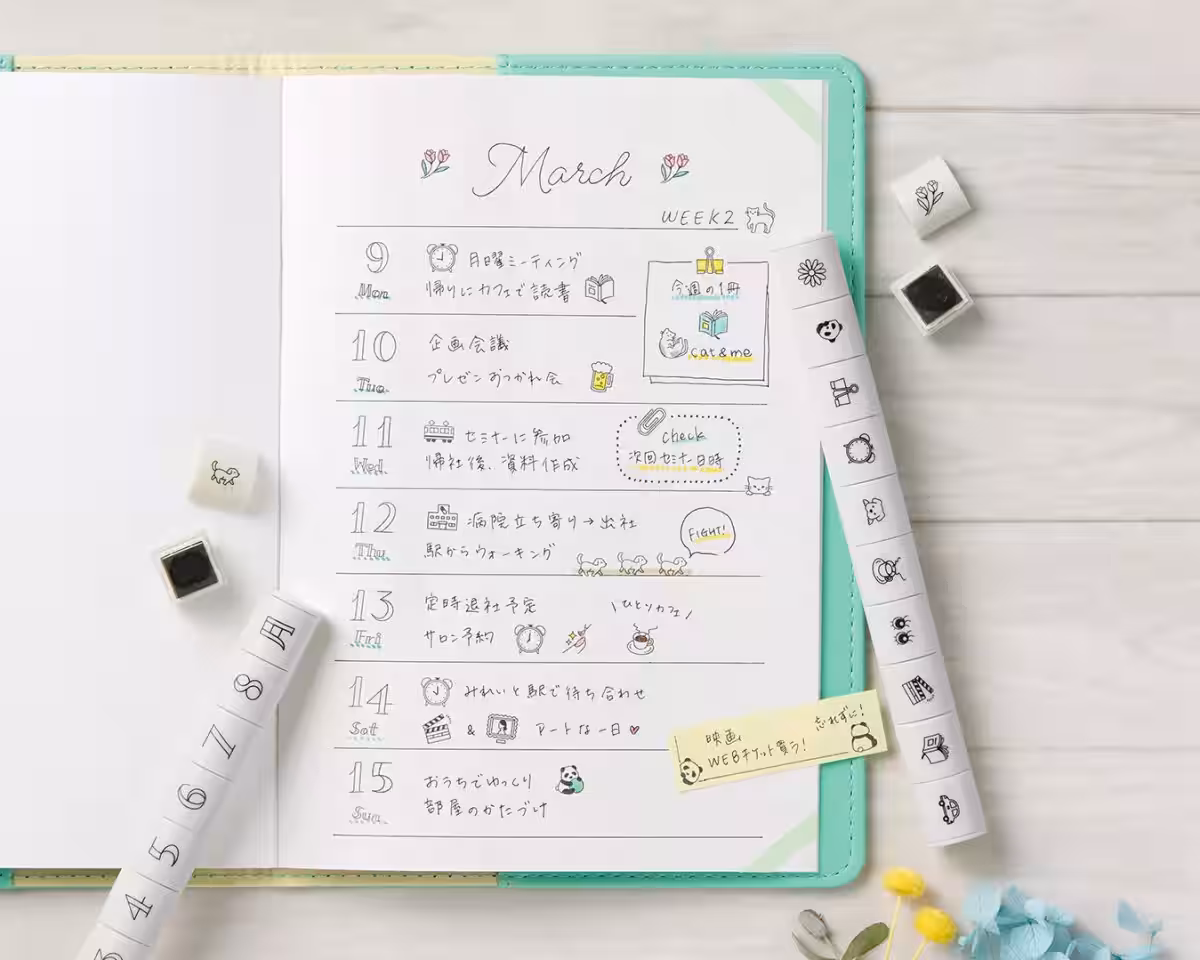 March
WEEK2
9
Mon
月曜ミーティング
帰りにカフェで読書
今週の1冊
cat&me
10
Tue
企画会議
プレゼンおつかれ会
11
Wed.
セミナーに参加
帰社後、資料作成
check
次回セミナー日時
12
Thu
病院立ち寄り→出社
駅からウォーキング
FIGHT!
13
Fri
定時退社予定
サロン予約
\ひとりカフェ/
14
Sat
みれいと駅で待ち合わせ
&
アートな一日♥
15
Sun
おうちでゆっくり
部屋のかたづけ
忘れずに!
映画
WEBチケット買う!
月
8
7
6
5
4
3